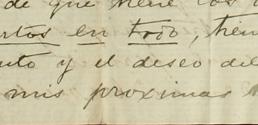 de que tiene los
en todo, tien
y el deseo de
mis proximas